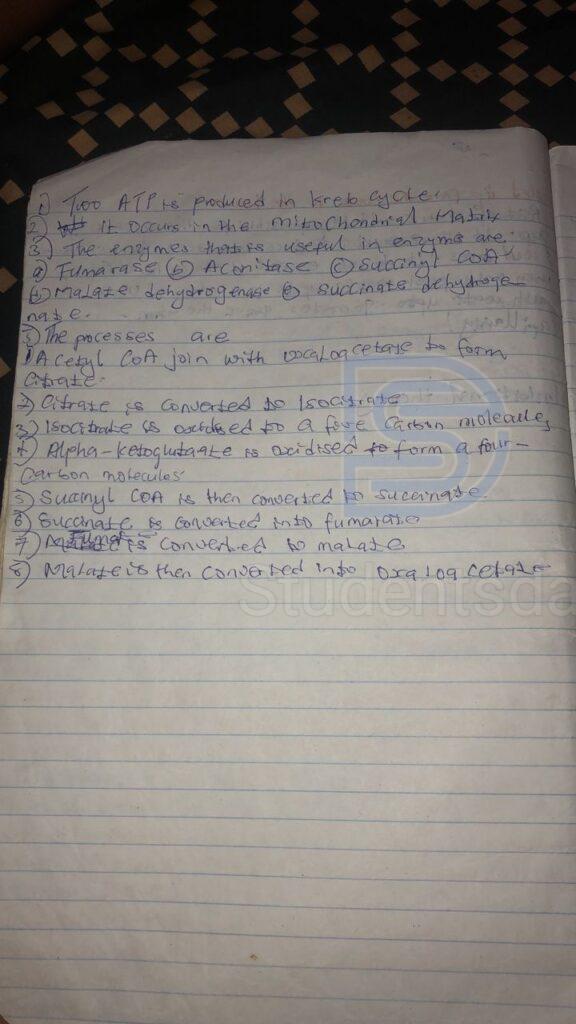 1) Two ATP is produced in kreb cycle.
2) it occurs in the mitochondrial Matrix
3) The enzymes that is useful in enzyme are
a) Fumarase (b) Aconitase (c) Succinyl COA
(d) Malate dehydrogenase (e) succinate dehydroge-
nate.
5) The processes are
1) Acetyl CoA join with oxaloacetate to form
Citrate.
2) Citrate is converted to Isocitrate
3) Isocitrate is oxidised to a five Carbon molecules
4) Alpha-ketoglutaate is oxidised to form a four-
Carbon molecules
5) Succinyl COA is then converted to succinate.
6) Succinate is converted into fumarate
7) Fumate is converted to malate
8) Malate is then converted into oxaloacetate
Studentsda